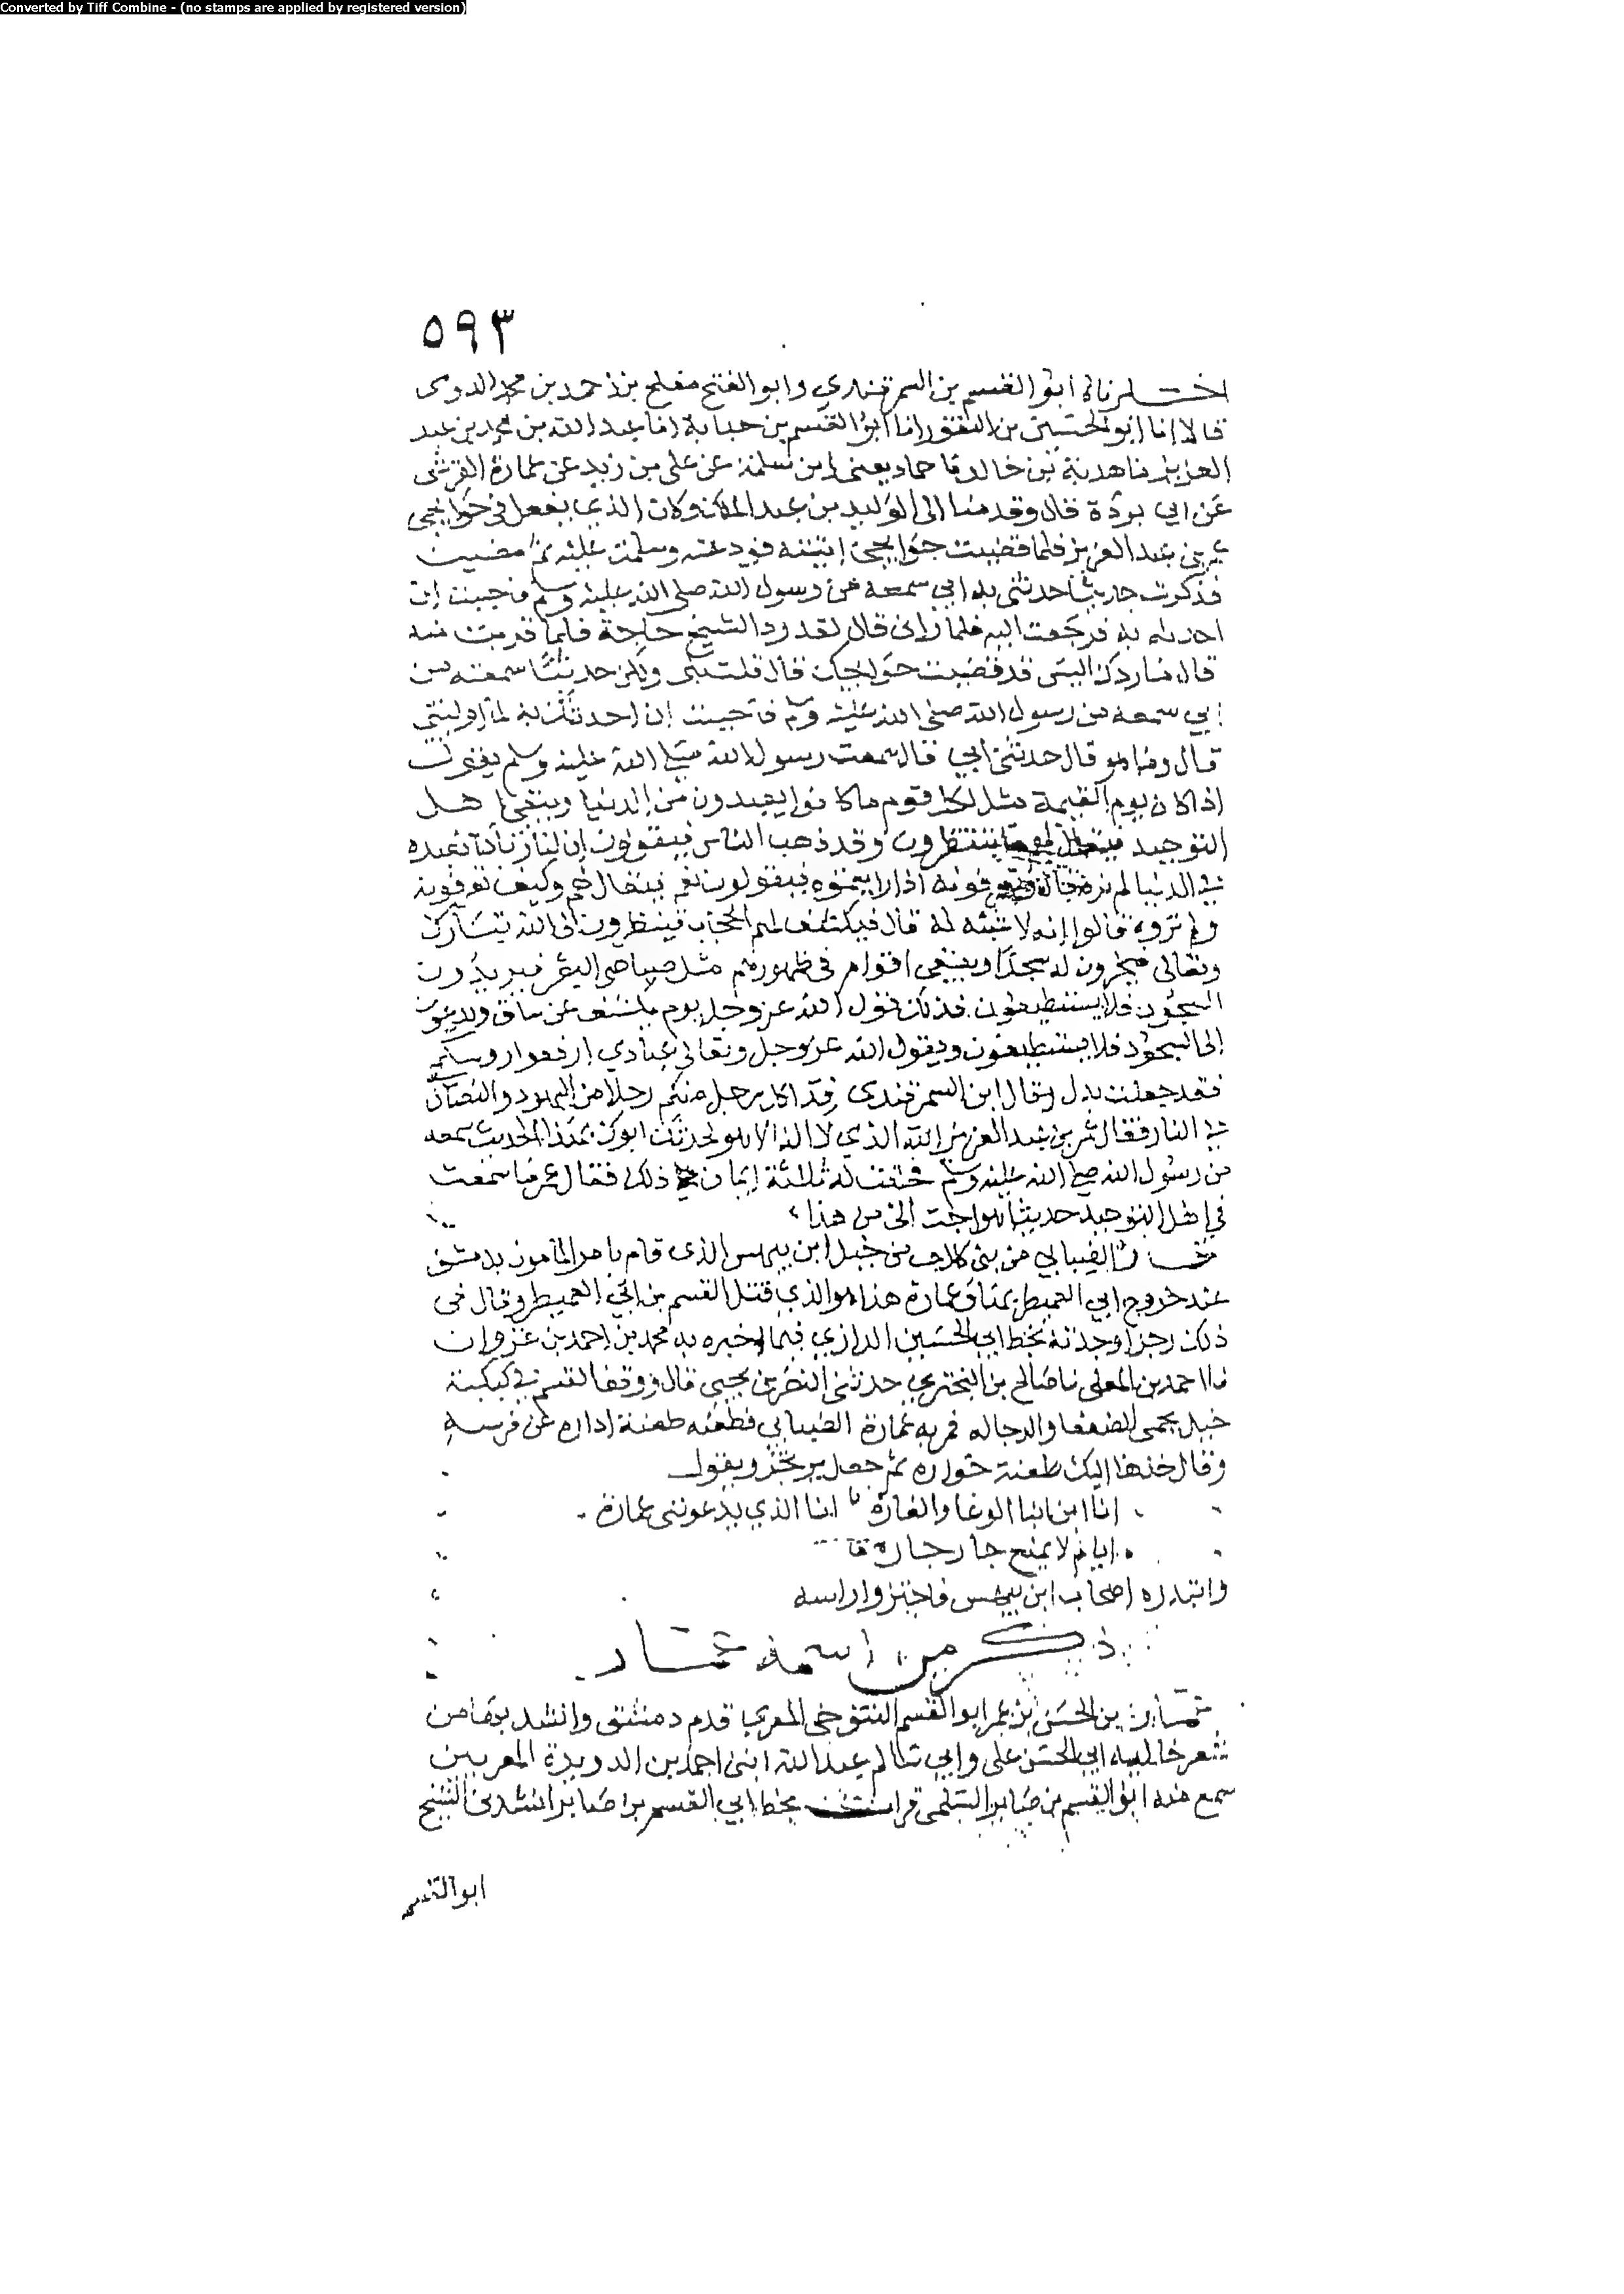 Converted by Tiff Combine - (no stamps are applied by registered version)
٥٩٣
اخبرناه ابو القسم بن السمرقندي وابو الفتح مفلح بن احمد بن محمد الدومى
قالا انا ابو الحسين بن النقور انا ابو القسم بن حبابة انا عبد الله بن محمد بن عبد
العزيز نا هدبة بن خالد نا حماد يعنى ابن سلمة عن على بن زيد عن عمارة القرشى
عن ابي بردة قال وقدمنا الى الوليد بن عبد الملك وكان الذي يفعل في حوايجى
عمر بن عبد العزيز فلما قضيت حوايجى اتيته فودعته وسلمت عليه ثم مضيت
فذكرت حديثا حدثنى به ابي سمعه من رسول الله صلى الله عليه وسلم فاحببت ان
احدثه به فرجعت اليه فلما راني قال لقد رد الشيخ حاجة فلما قربت منه
قال ما ردك اليس قد قضيت حوايجك قال قلت بلى ولكن حديثا سمعته من
ابي سمعه من رسول الله صلى الله عليه وسلم فاحببت ان احدثك به لما اوليتنى
قال وما هو قال حدثنى ابي قال سمعت رسول الله صلى الله عليه وسلم يقول
اذا كان يوم القيمة مثل لكل قوم ما كانوا يعبدون من الدنيا ويبقى اهل
التوحيد فيقال لهم ما تنتظرون وقد ذهب الناس فيقولون ان لنا ربا كنا نعبده
في الدنيا لم نره قال وتعرفونه اذا رايتموه فيقولون نعم فيقال لهم وكيف تعرفونه
ولم تروه قالوا انه لا شبه له قال فيكشف لهم الحجاب فينظرون الى الله تبارك
وتعالى فيخرون له سجدا ويبقى اقوام في ظهورهم مثل صياصى البقر فيريدون
السجود فلا يستطيعون فذلك قول الله عز وجل يوم يكشف عن ساق ويدعون
الى السجود فلا يستطيعون ويقول الله عز وجل وتعالى عبادي ارفعوا روسكم
فقد جعلت بدل وقال ابن السمرقندى فدا كل رجل منكم رجلا من اليهود والنصارى
في النار فقال عمر بن عبد العزيز الله الذي لا اله الا هو لحدثك ابوك بهذا الحديث سمعه
من رسول الله صلى الله عليه وسلم فحلفت له ثلاثة ايمان على ذلك فقال عمر ما سمعت
في اهل التوحيد حديثا هو احب الى من هذا
عمارة الضبابي من بنى كلاب من خيل ابن بيهس الذى قام بامر المامون بدمشق
عند خروج ابي العميطر بها وعمارة هذا هو الذي قتل القسم بن ابي العميطر وقال في
ذلك رجزا وجدته بخط ابي الحسين الرازي فيما اخبره به محمد بن احمد بن غزوان
نا احمد بن المعلى نا صالح بن البختري حدثنى النضر بن يحيى قال ووقف القسم في كبكبة
خيل يحمى الضعفا والرجاله فمر به عمارة الضبابي فطعنه طعنة اداره عن فرسه
وقال خذها اليك طعنة خواره ثم جعل يرتجز ويقول
انا ابن ابنا الوغا والغارة انا الذي يدعوننى عمارة
ايام لا يمنع جار جاره
وابتدره اصحاب ابن بيهس فاحتزوا راسه
ذكر من اسمه عمار
عمار بن الحسن بن عمر ابو القسم التنوخى المعري قدم دمشق وانشد بها من
شعر خاليه ابي الحسن على وابي سالم عبد الله ابنى احمد بن الدويدة المعريين
سمع منه ابو القسم بن صابر السلمى قرات بخط ابي القسم بن صابر انشدنى الشيخ
ابو القسم